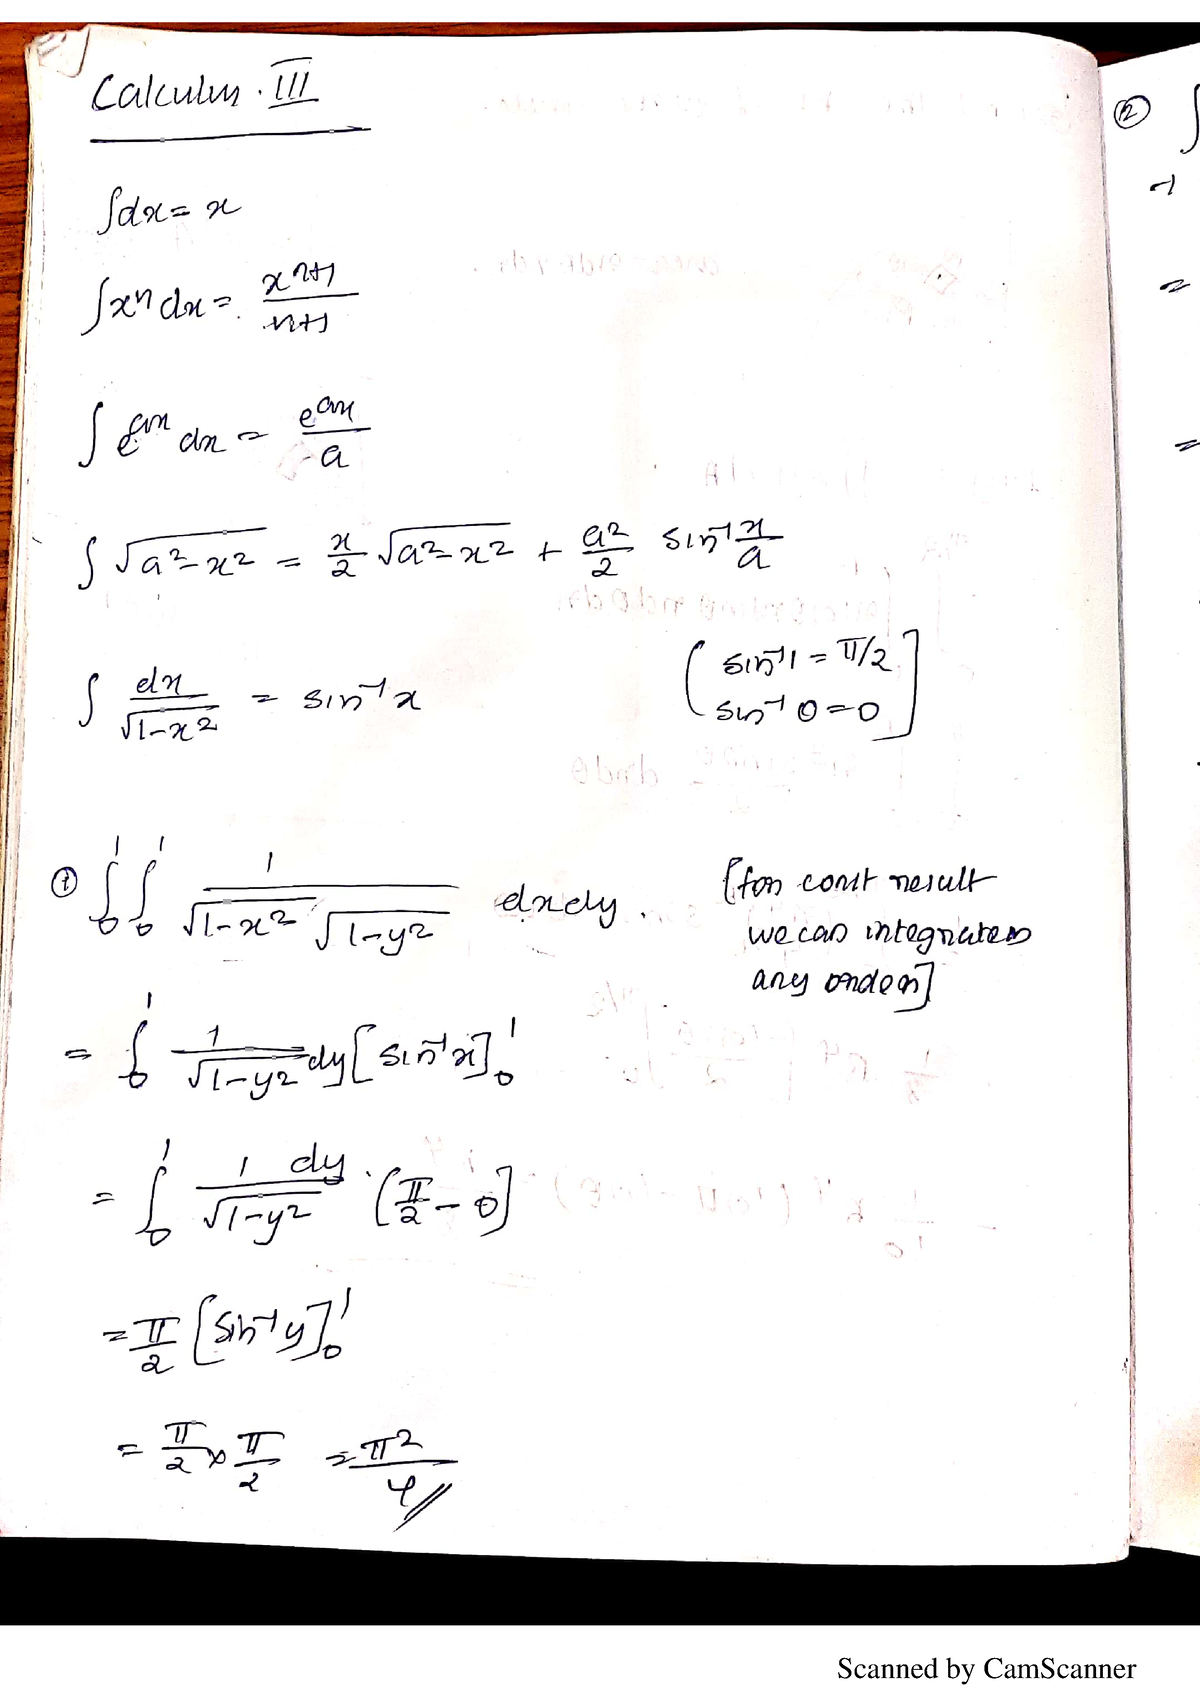 Calculus . III
∫dx = x
∫xⁿ dx = xⁿ⁺¹/n+1
∫ eᵃˣ dx = eᵃˣ/a
∫ √a²-x² = x/2 √a²-x² + a²/2 sin⁻¹ x/a
∫ dx/√1-x² = sin⁻¹ x
( sin⁻¹ 1 = π/2
sin⁻¹ 0 = 0 ]
① ∫₀¹ ∫₀¹ 1/√1-x² √1-y² dxdy .
[for const result
we can integrate in
any order]
= ∫₀¹ 1/√1-y² dy [sin⁻¹x]₀¹
= ∫₀¹ 1/√1-y² dy . [π/2 - 0]
= π/2 [sin⁻¹ y]₀¹
= π/2 × π/2 = π²/4 //
② ∫
=
=
Scanned by CamScanner